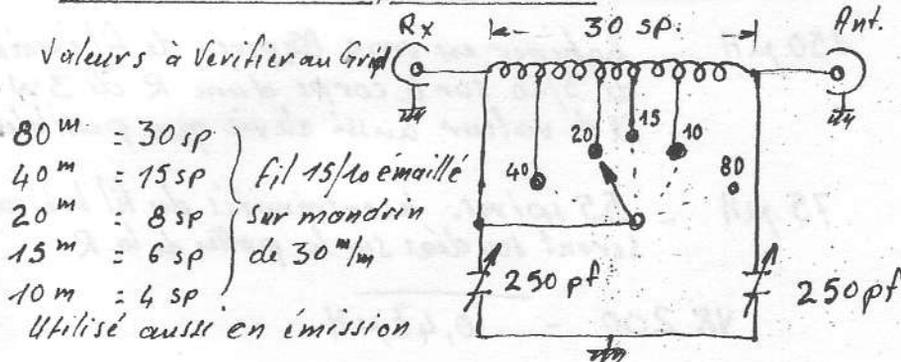 Rx
30 sp.
Ant.
Valeurs à Verifier au Grid
80 m = 30 sp
40 m = 15 sp
20 m = 8 sp
15 m = 6 sp
10 m = 4 sp
fil 15/10 émaillé
sur mandrin
de 30 m/m
Utilisé aussi en émission
40
20
15
10
80
250 pf
250 pf